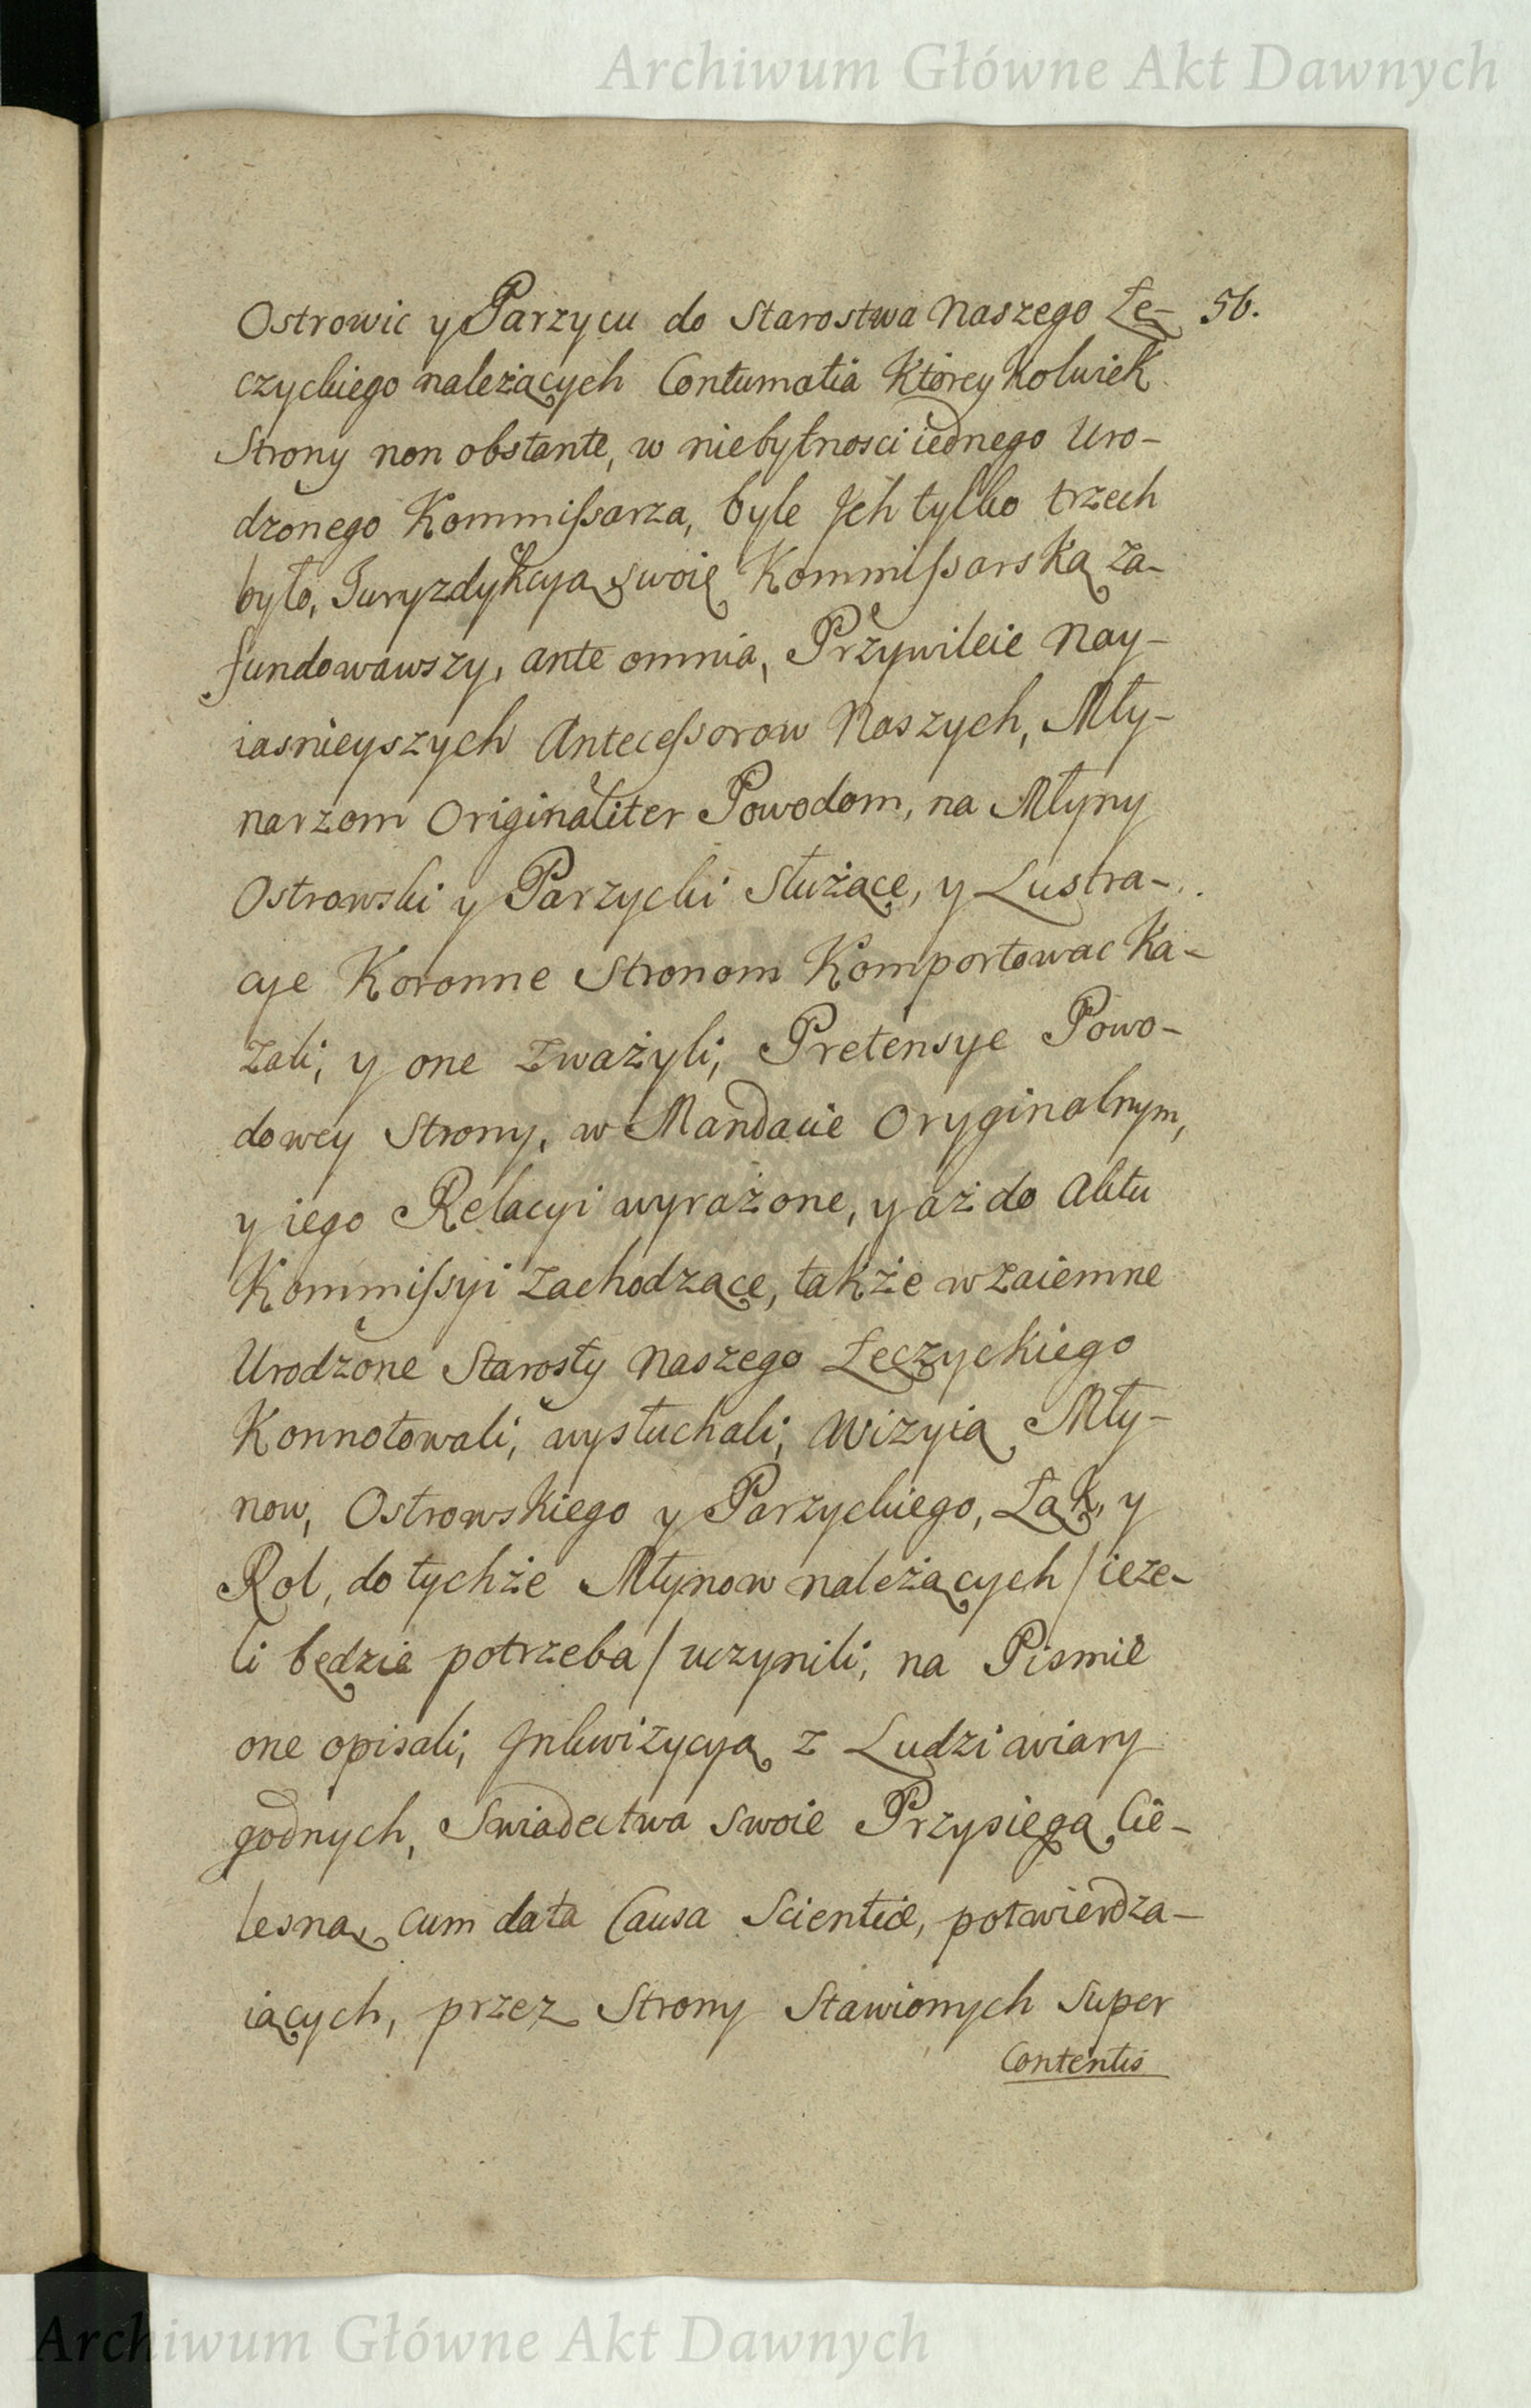 Archiwum Główne Akt Dawnych
Ostrowic y Parzycu do Starostwa Naszego Łę- 56.
czyckiego należących Contumatia Ktorey Kolwiek
Strony non obstante, w niebytnosci iednego Uro-
dzonego Kommissarza, byle Jch tylko trzech
było, Juryzdykcyą swoię Kommissarską za-
fundowawszy, ante omnia, Przywileie Nay-
iasnieyszych Antecessorow Naszych, Mły-
narzom Originaliter Powodom, na Młyny
Ostrowski y Parzycki Służące, y Lustra-
cye Koronne Stronom Komportowac Ka-
zali; y one zważyli; Pretensye Powo-
dowey Strony, w Mandacie Oryginalnym,
y iego Relacyi wyrażone, y aż do Aktu
Kommissyi zachodzące, także wzaiemne
Urodzone Starosty Naszego Łęczyckiego
Konnotowali, wysłuchali; Wizyią Mły-
now, Ostrowskiego y Parzyckiego, Łąk, y
Rol, do tychże Młynow należących / ieże-
li będzie potrzeba / uczynili; na Pismie
one opisali; Jnkwizycyą z Ludzi wiary
godnych, Swiadectwa swoie Przysięgą Cie-
lesną, cum data Causa Scientiæ, potwierdza-
iących, przez Strony Stawionych super
Contentis
Archiwum Główne Akt Dawnych